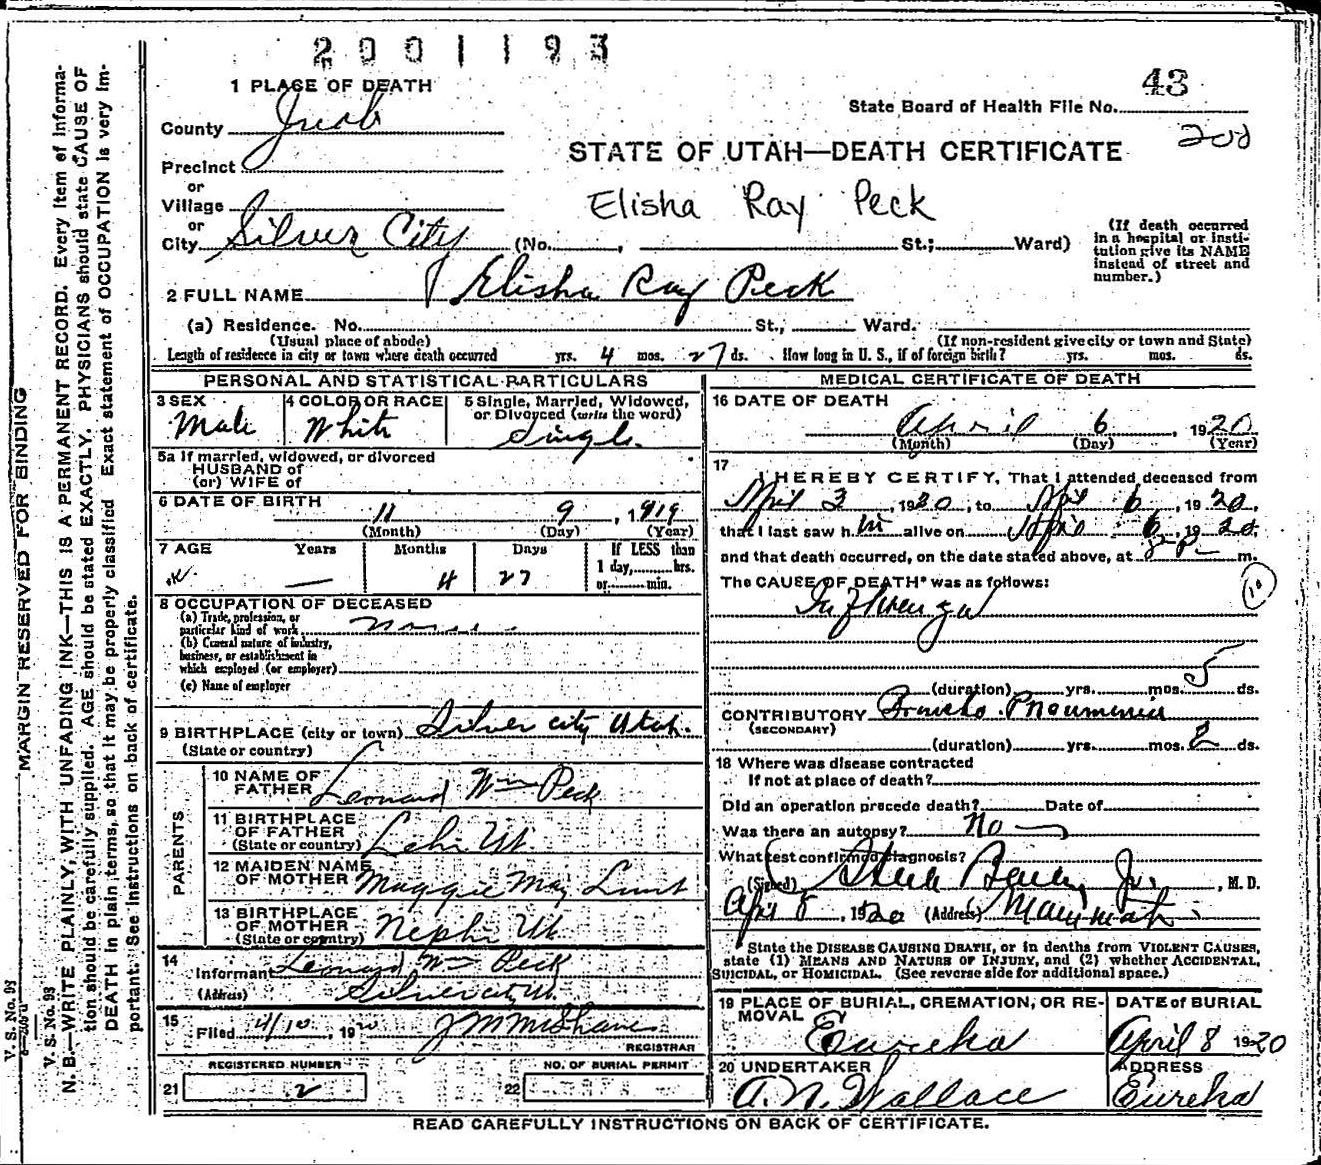 2001193
1 PLACE OF DEATH
43
State Board of Health File No.
County Juab
200
STATE OF UTAH—DEATH CERTIFICATE
Precinct
or
Village
Elisha Ray Peck
or
City Silver City (No. , St.; Ward)
(If death occurred in a hospital or insti-tution give its NAME instead of street and number.)
2 FULL NAME Elisha Ray Peck
(a) Residence. No. St., Ward.
(Usual place of abode) (If non-resident give city or town and State)
Length of residece in city or town where death occurred yrs. 4 mos. 27 ds. How long in U. S., if of foreign birth? yrs. mos. ds.
PERSONAL AND STATISTICAL PARTICULARS
3 SEX 4 COLOR OR RACE 5 Single, Married, Widowed,
or Divorced (write the word)
Male White Single
5a If married, widowed, or divorced
HUSBAND of
(or) WIFE of
6 DATE OF BIRTH
11 9 , 1919
(Month) (Day) (Year)
7 AGE Years Months Days If LESS than
1 day, hrs.
— 4 27 or min.
8 OCCUPATION OF DECEASED
(a) Trade, profession, or
particular kind of work none
(b) General nature of industry,
business, or establishment in
which employed (or employer)
(c) Name of employer
9 BIRTHPLACE (city or town) Silver city Utah.
(State or country)
PARENTS
10 NAME OF
FATHER Leonard Wm Peck
11 BIRTHPLACE
OF FATHER
(State or country) Lehi Ut.
12 MAIDEN NAME
OF MOTHER Maggie May Lunt
13 BIRTHPLACE
OF MOTHER
(State or country) Nephi Ut.
14
Informant Leonard Wm Peck
(Address) Silver city Ut.
15
Filed 4/10, 1920 J M McShane
REGISTRAR
REGISTERED NUMBER NO. OF BURIAL PERMIT
21 2 22
MEDICAL CERTIFICATE OF DEATH
16 DATE OF DEATH
April 6 , 1920
(Month) (Day) (Year)
17
I HEREBY CERTIFY, That I attended deceased from
April 3 , 1920, to Apr 6 , 1920,
that I last saw h im alive on April 6, 1920,
and that death occurred, on the date stated above, at m.
The CAUSE OF DEATH* was as follows:
Influenza
10
(duration) yrs. mos. 5 ds.
CONTRIBUTORY Broncho-Pneumonia
(SECONDARY)
(duration) yrs. mos. 2 ds.
18 Where was disease contracted
If not at place of death?
Did an operation precede death? Date of
Was there an autopsy? No
What test confirmed diagnosis?
(Signed) Steele Bailey Jr. , M. D.
April 8, 1920 (Address) Mammoth
*State the DISEASE CAUSING DEATH, or in deaths from VIOLENT CAUSES,
state (1) MEANS AND NATURE OF INJURY, and (2) whether ACCIDENTAL,
SUICIDAL, or HOMICIDAL. (See reverse side for additional space.)
19 PLACE OF BURIAL, CREMATION, OR RE-
MOVAL
Eureka
DATE of BURIAL
April 8 1920
20 UNDERTAKER
A. N. Wallace
ADDRESS
Eureka
READ CAREFULLY INSTRUCTIONS ON BACK OF CERTIFICATE.
MARGIN RESERVED FOR BINDING
V. S. No. 93
V. S. No. 93
N. B.—WRITE PLAINLY, WITH UNFADING INK—THIS IS A PERMANENT RECORD. Every item of informa-
tion should be carefully supplied. AGE should be stated EXACTLY. PHYSICIANS should state CAUSE OF
DEATH in plain terms, so that it may be properly classified. Exact statement of OCCUPATION is very im-
portant. See instructions on back of certificate.